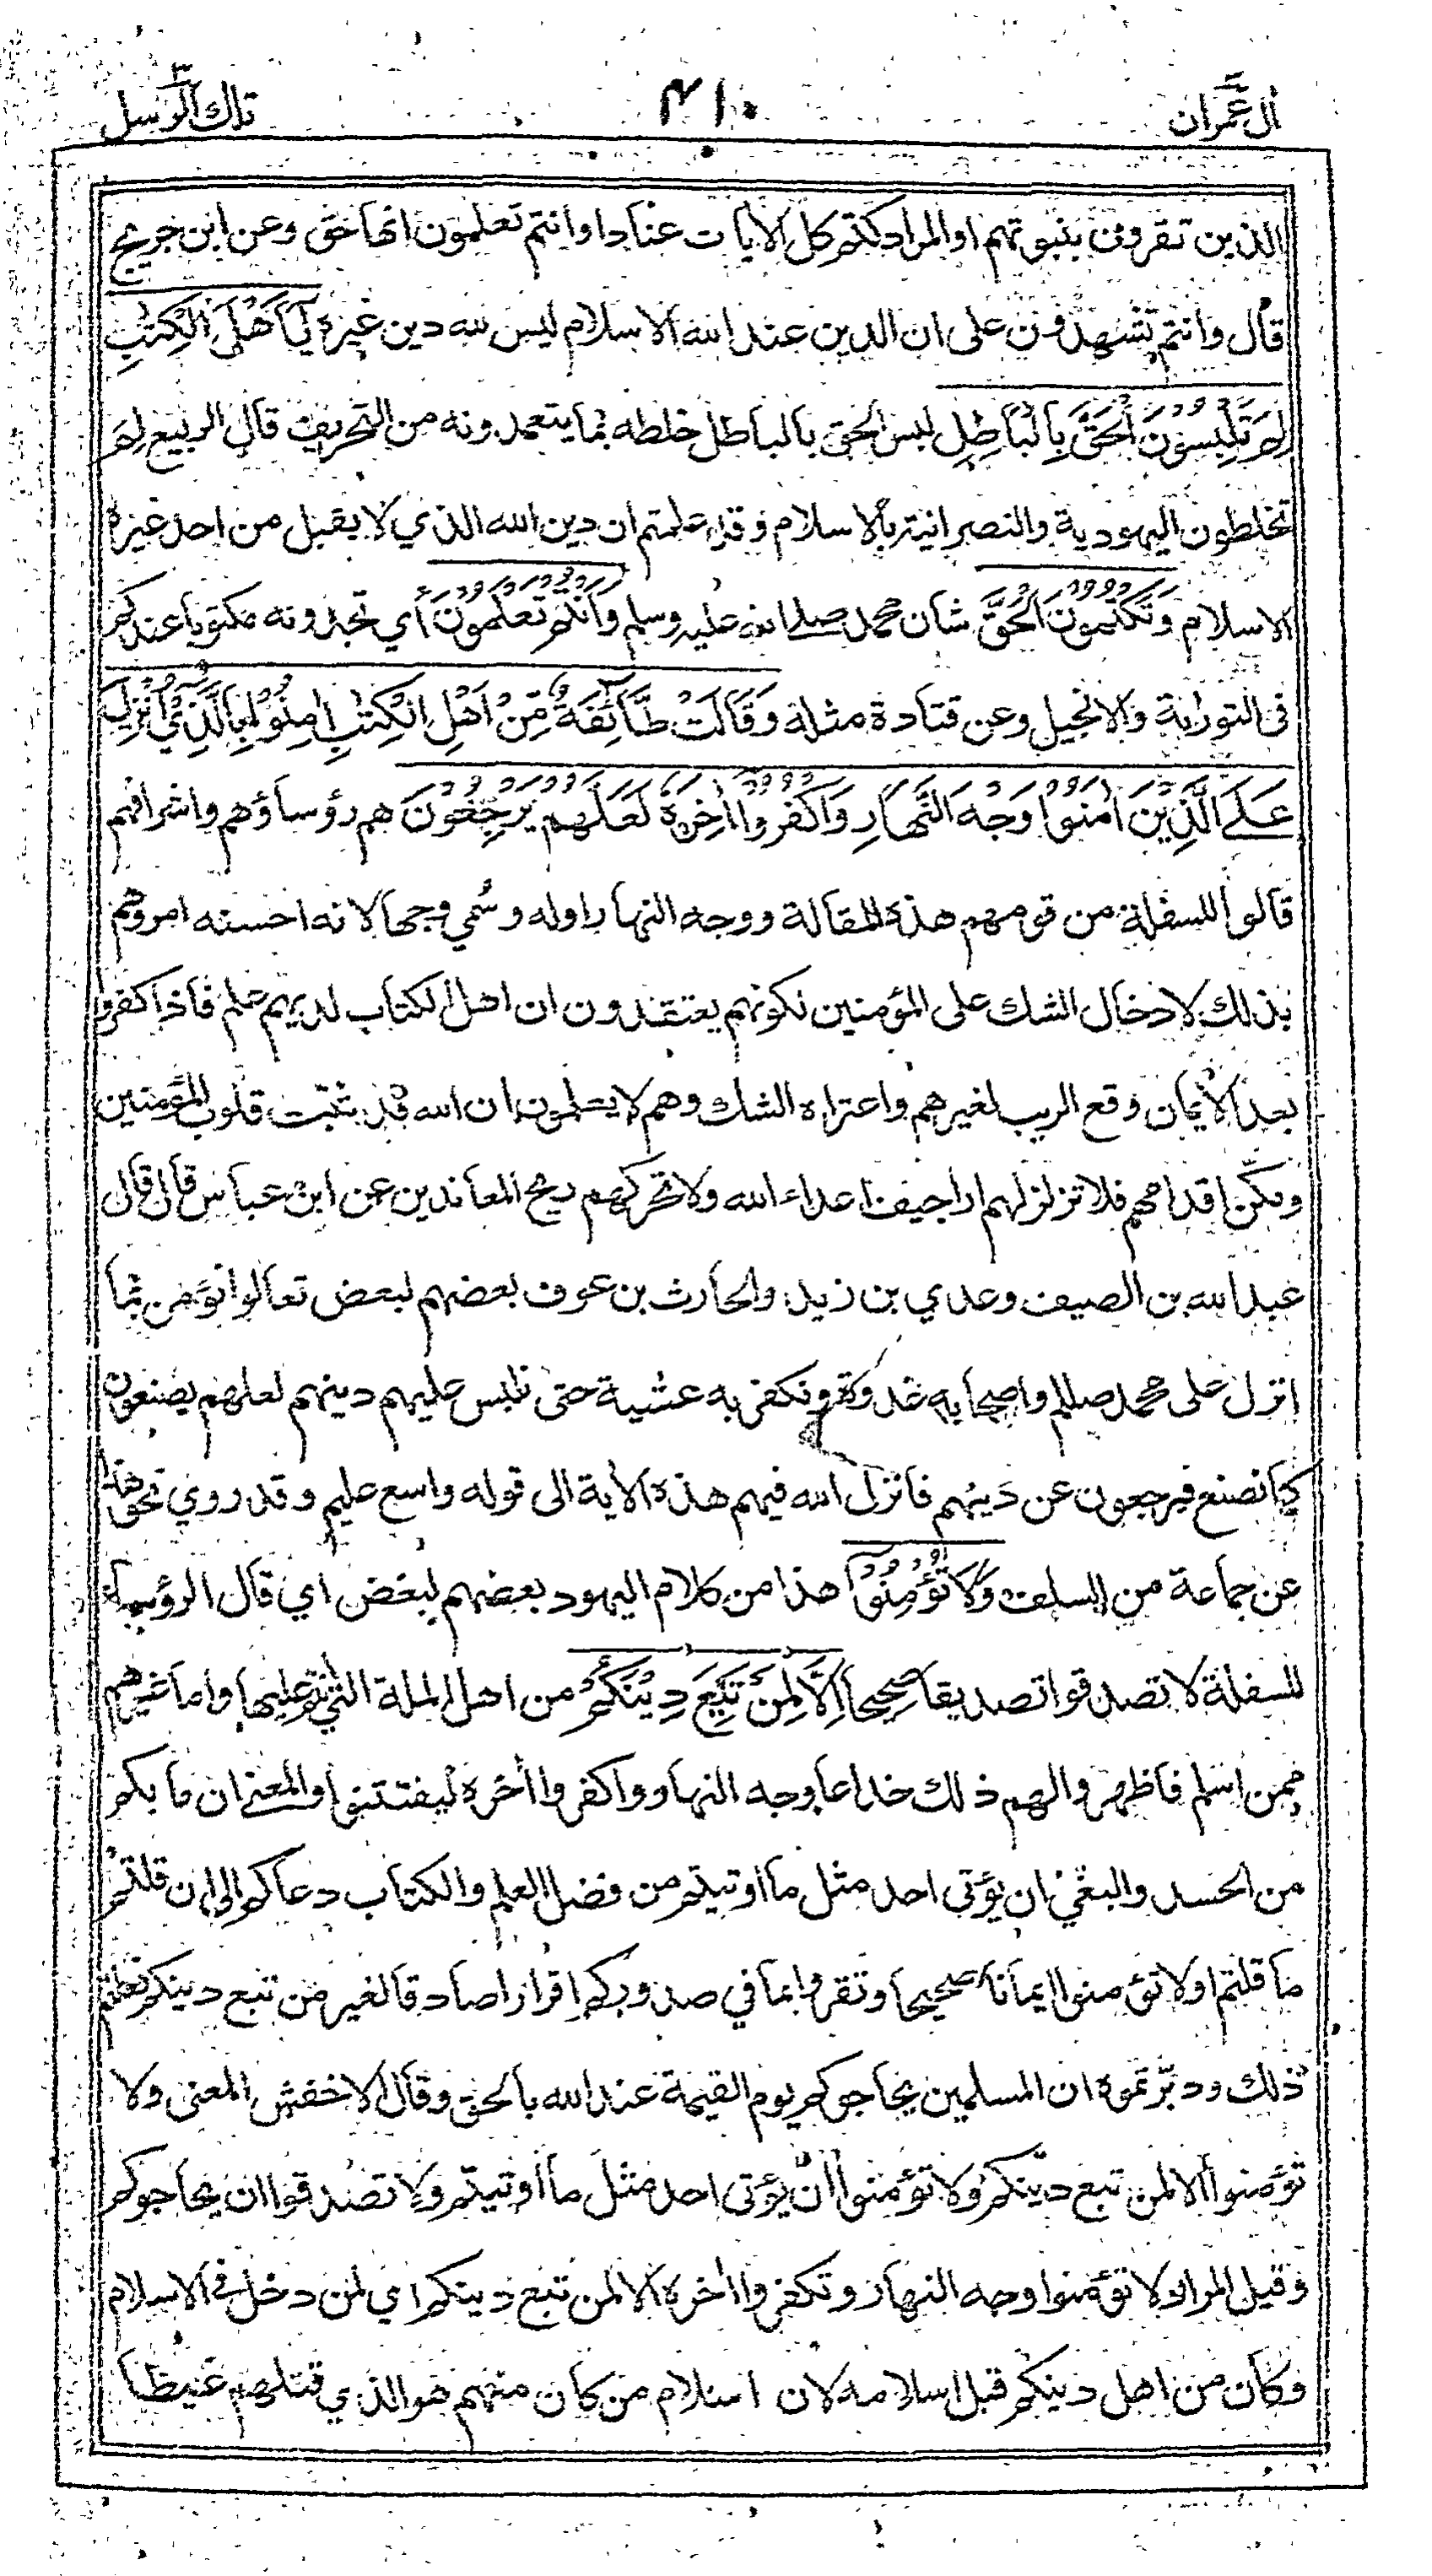 اٰل عمران
٤١٠
تلك الرسل٣
الذين تقرون بنبوتهم او المراد كتم كل الايات عنادا وانتم تعلمون انها حق وعن ابن جريج
قال وانتم تشهدون على ان الدين عند الله الاسلام ليس لله دين غيره يٰٓاَهْلَ الْكِتٰبِ
لِمَ تَلْبِسُوْنَ الْحَقَّ بِالْبَاطِلِ لبس الحق بالباطل خلطه بما يتعمدونه من التحريف قال الربيع لم
تخلطون اليهودية والنصرانية بالاسلام وقد علمتم ان دين الله الذي لا يقبل من احد غيره
الاسلام وَتَكْتُمُوْنَ الْحَقَّ شان محمد صلى الله عليه وسلم وَاَنْتُمْ تَعْلَمُوْنَ اي تجدونه مكتوبا عندكم
فى التوراية والانجيل وعن قتادة مثله وَقَالَتْ طَّآئِفَةٌ مِّنْ اَهْلِ الْكِتٰبِ اٰمِنُوْا بِالَّذِيْٓ اُنْزِلَ
عَلَى الَّذِيْنَ اٰمَنُوْا وَجْهَ النَّهَارِ وَاكْفُرُوْا اٰخِرَهٗ لَعَلَّهُمْ يَرْجِعُوْنَ هم رؤساؤهم واشرافهم
قالوا للسفلة من قومهم هذه المقالة ووجه النهار اوله وسُمي وجها لانه احسنه امروهم
بذلك لادخال الشك على المؤمنين لكونهم يعتقدون ان اهل الكتاب لديهم علم فاذا كفروا
بعد الايمان وقع الريب لغيرهم واعتراه الشك وهم لا يعلمون ان الله قد ثبّت قلوب المؤمنين
ومكّن اقدامهم فلا تزلزلهم اراجيف اعداء الله ولا تحركهم ريح المعاندين عن ابن عباس قال قال
عبد الله بن الصيف وعدي بن زيد والحارث بن عوف بعضهم لبعض تعالوا نؤمن بما
انزل على محمد صللم واصحابه غدوة ونكفر به عشية حتى نلبس عليهم دينهم لعلهم يصنعون
كما نصنع فيرجعون عن دينهم فانزل الله فيهم هذه الاية الى قوله واسع عليم وقد روي نحو هذا
عن جماعة من السلف وَلَا تُؤْمِنُوْٓا هذا من كلام اليهود بعضهم لبعض اي قال الرؤساء
للسفلة لا تصدقوا تصديقا صحيحا اِلَّا لِمَنْ تَبِعَ دِيْنَكُمْ من اهل الملة التي انتم عليها واما غيرهم
ممن اسلم فاظهروا لهم ذلك خداعا وجه النهار واكفروا اخره ليفتتنوا والمعنى ان ما بكم
من الحسد والبغي ان يؤتى احد مثل ما اوتيتم من فضل العلم والكتاب دعاكم الى ان قلتم
ما قلتم او لا تؤمنوا ايمانا صحيحا وتقروا بما في صدوركم اقرارا صادقا لغير من تبع دينكم فعلتم
ذلك ودبّرتموه ان المسلمين يحاجوكم يوم القيمة عند الله بالحق وقال الاخفش المعنى ولا
تؤمنوا الا لمن تبع دينكم ولا تؤمنوا ان يؤتى احد مثل ما اوتيتم ولا تصدقوا ان يحاجوكم
وقيل المراد لا تؤمنوا وجه النهار وتكفروا اخره الا لمن تبع دينكم اي لمن دخل فى الاسلام
وكان من اهل دينكم قبل اسلامه لان اسلام من كان منهم هو الذي قتلهم غيظا